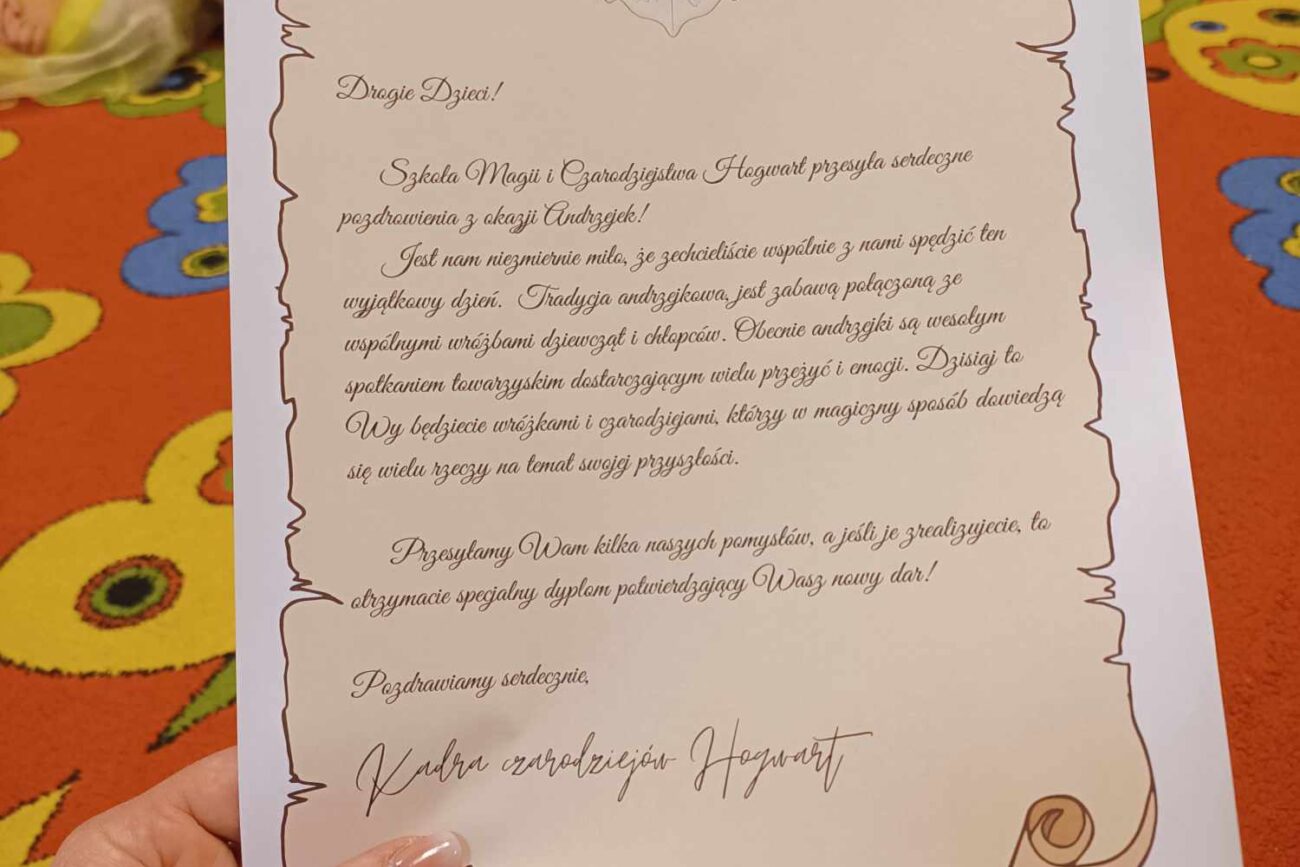 Drogie Dzieci!
Szkoła Magii i Czarodziejstwa Hogwart przesyła serdeczne
pozdrowienia z okazji Andrzejek!
Jest nam niezmiernie miło, że zechcieliście wspólnie z nami spędzić ten
wyjątkowy dzień. Tradycja andrzejkowa, jest zabawą połączoną ze
wspólnymi wróżbami dziewcząt i chłopców. Obecnie andrzejki są wesołym
spotkaniem towarzyskim dostarczającym wielu przeżyć i emocji. Dzisiaj to
Wy będziecie wróżkami i czarodziejami, którzy w magiczny sposób dowiedzą
się wielu rzeczy na temat swojej przyszłości.
Przesyłamy Wam kilka naszych pomysłów, a jeśli je zrealizujecie, to
otrzymacie specjalny dyplom potwierdzający Wasz nowy dar!
Pozdrawiamy serdecznie,
Kadra czarodziejów Hogwart